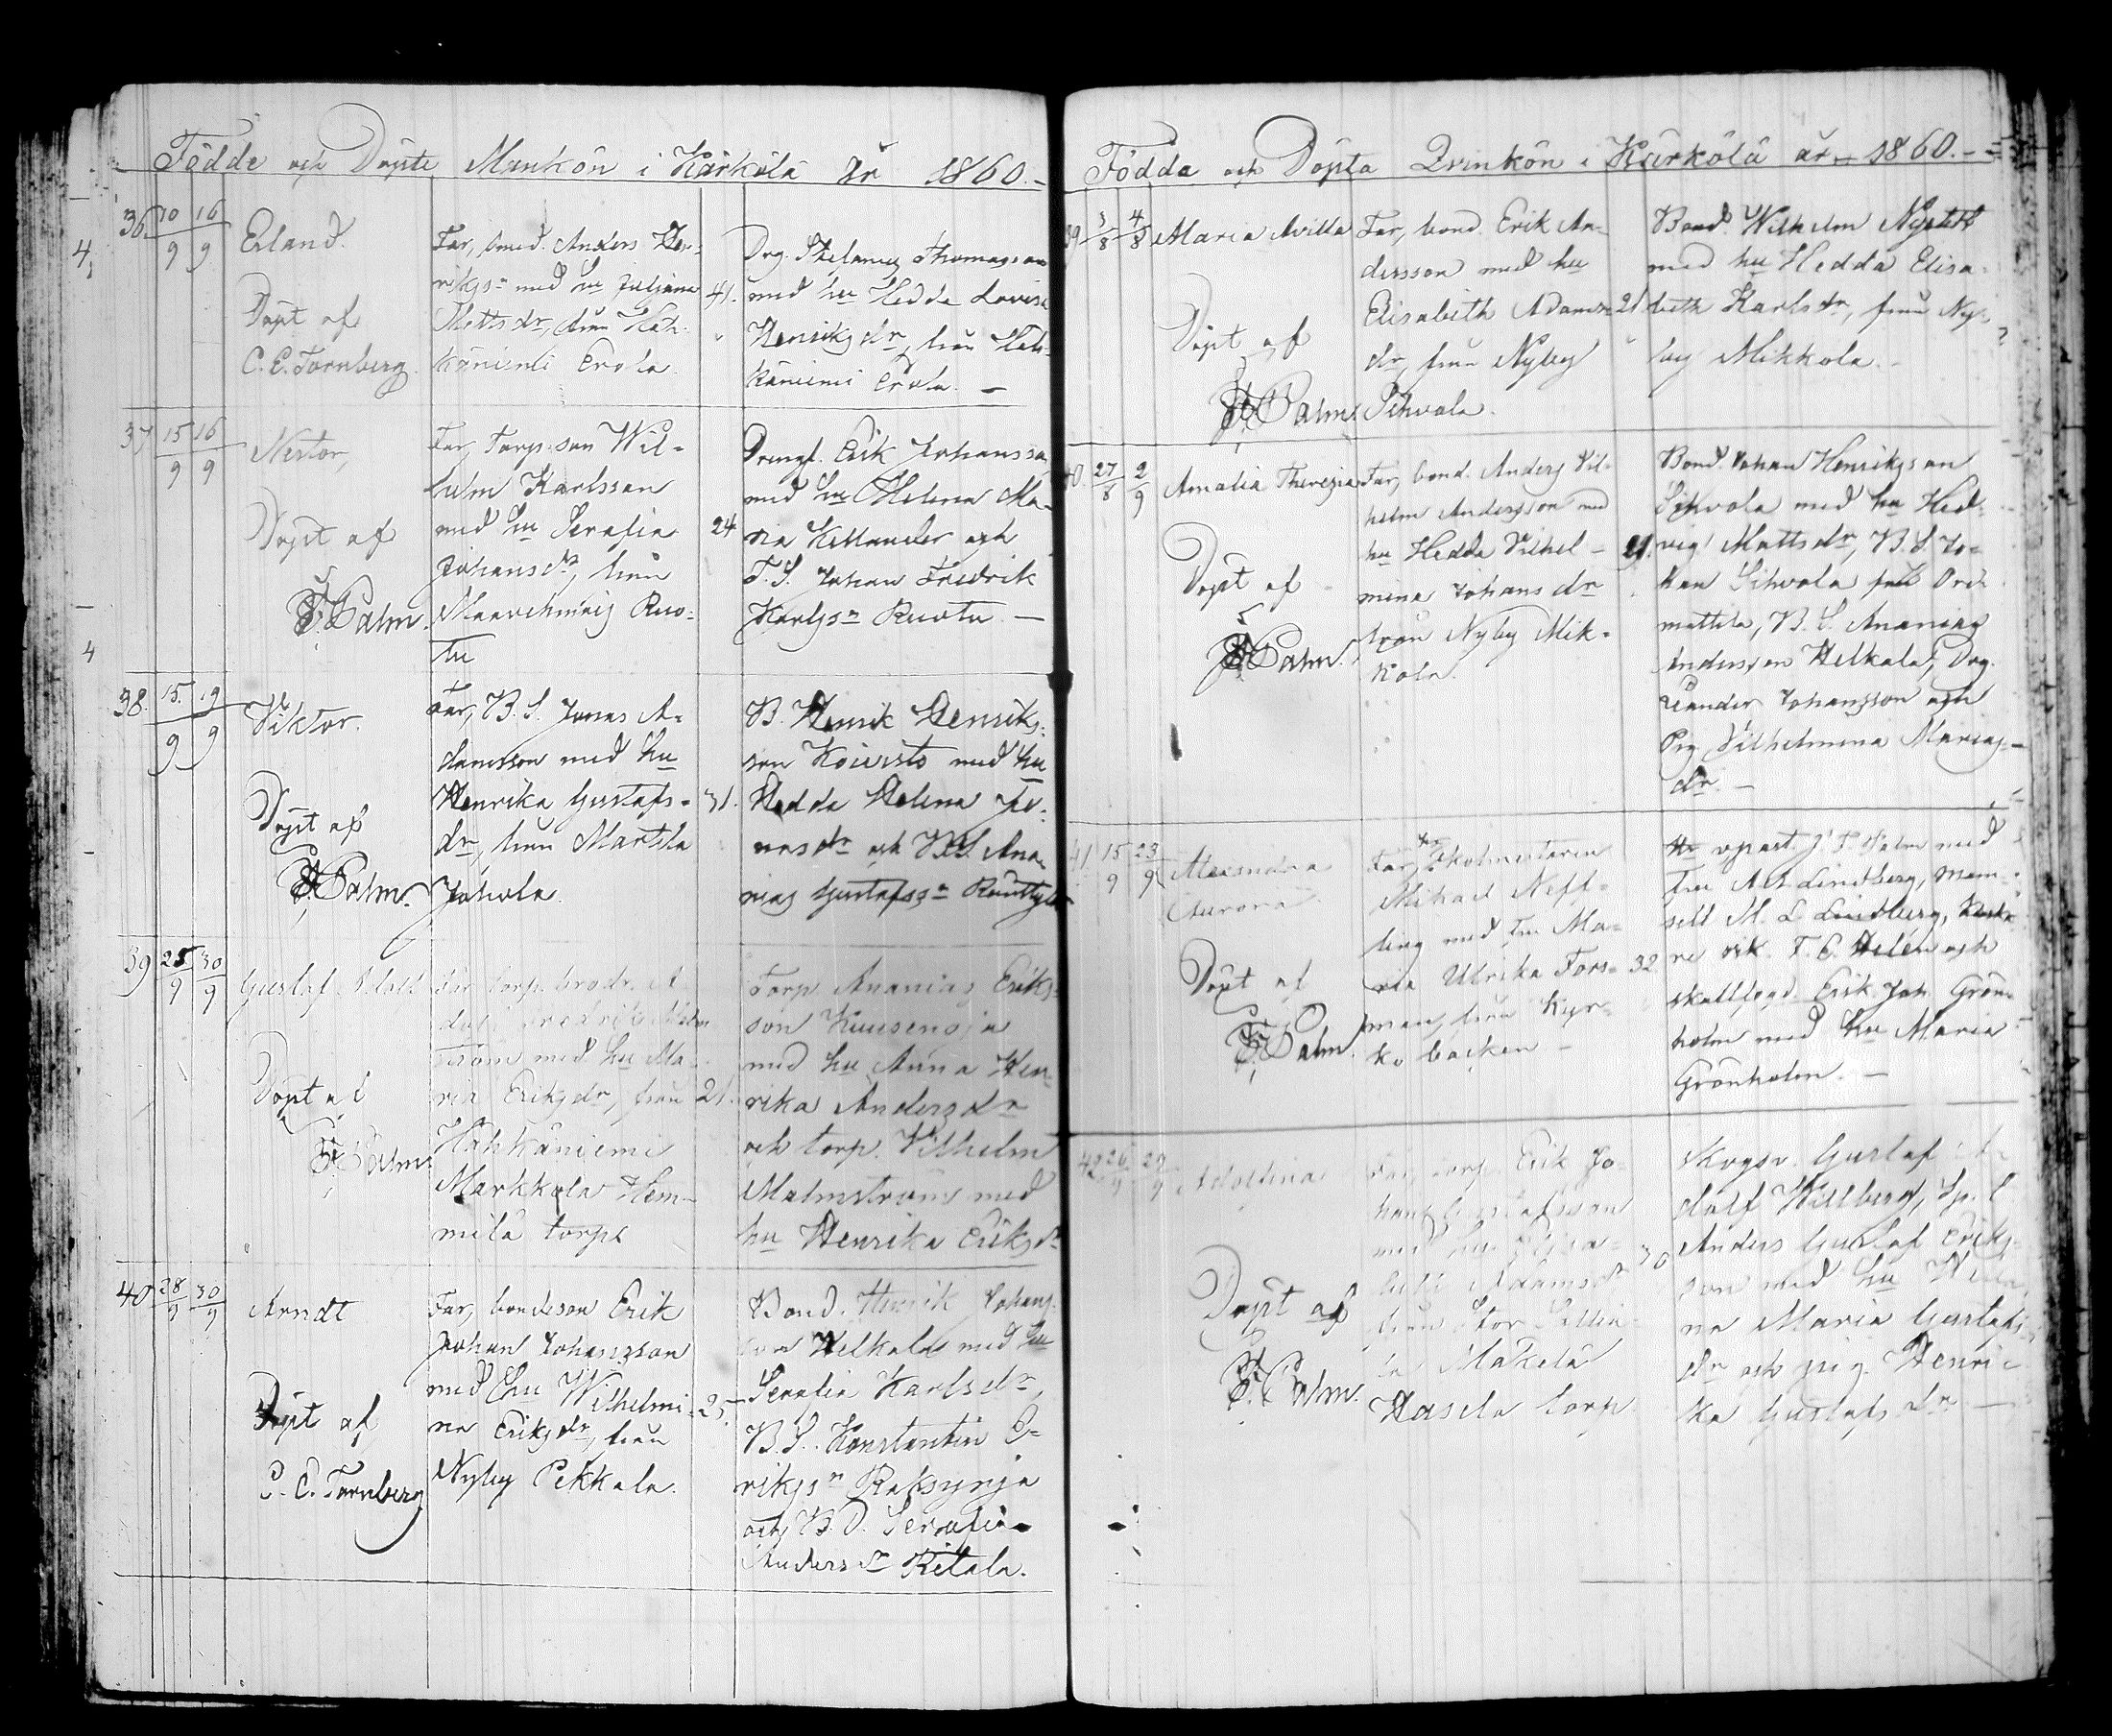 Födde och Döpte Mankön i Kärkölä År 1860.
36. 10/9 16/9 Erland.
Döpt af
C. E. Tornberg.
Far, smed. Anders Hen-
riksn med hu Juljana
Matts dr, från Häh-
käniemi Erola
41.
Drg. Thomasson
med hu Hedda Lovisa
Henriks dr, från Häh-
käniemi Erola. —
37 15/9 16/9 Nestor,
Döpt af
Palm.
Far, Torp. son Wil-
helm Karlsson
med hu Serafia
Johansdr, från
Maavehmais Ruo-
tu
24
Drengf. Erik Johansson
med hu Helena Ma-
ria Kellander och
T. S. Johan Fredrik
Karlsn Ruotu —
38. 15/9 19/9 Viktor.
Döpt af
Palm.
Far, B. S. Jonas A-
damsson med hu
Henrika Gustafs-
dr, från Marttila
Juhola.
31.
B. Henrik Henriks-
son Koivisto med hu
Hedda Helena Jo-
nasdr och B. S. Ana-
nias Gustafssn
39 25/9 30/9 Gustaf Adolf
Döpt af
Palm
Far torp. brodr. A-
dolf Fredrik Malm-
ström med hu Ma-
ria Eriksdr, från
Hähkäniemi
Markkola Hem-
milä torp
21.
Torp Ananias Eriks-
son Kuusenoja
med hu Anna Hen-
rika Andersdr
och torp. Vilhelm
Malmström med
hu Henrika Eriksdr
40 28/9 30/9 Arndt
Döpt af
C. E. Tornberg
Far, bondeson Erik
Johan Johansson
med hu Wilhelmi-
na Eriksdr, från
Nyby Pekkala.
25.
Bond. Henrik Johans-
son Helkala med hu
Serafia Karlsdr,
B. S. Konstantin E-
riksn
och B. D. Serafia
Andersdr Rietala.
Födda och Döpta Qvinkön i Kärkölä år 1860.
39 3/8 4/8 Maria Avilla
Döpt af
Palm.
Far, bond. Erik An-
dersson med hu
Elisabeth Adams-
dr, från Nyby
Sihvola.
21
Bond. Wilhelm
med hu Hedda Elisa-
beth Karlsdr, från Ny-
by Mikkola.
40. 27/8 2/9 Amalia Theresia
Döpt af
Palm.
Far, bond. Anders Vil-
helm Andersson med
hu Hedda Vilhel-
mina Johansdr
från Nyby Mik-
kola.
21.
Bond. Johan Henriksson
Sihvola med hu Hed-
vig Mattsdr, B. S. Jo-
han Sihvola från Ori-
mattila, B. S. Ananias
Andersson Helkala, Drg.
Leander Johansson och
Pig. Vilhelmina Marias-
dr. —
41 15/9 23/9 Alexandra
Aurora.
Döpt af
Palm.
Far, Skolmästaren
Mikael Neff-
ling med fru Ma-
ria Ulrika Fors-
man, från Kyr-
ko backen —
32
Hr v past. J. F. Palm med
fru A A Lindberg, Mam-
sell M. L. Lindberg,
F. E. Helén och
skallfogd. Erik Joh Grön-
holm med hu Maria
Grönholm. —
42 26/9 29/9 Adolfina
Döpt af
Palm.
Far, torp. Erik Jo-
han Gustafsson
med hu Elisa-
beth Adamsdr
från Stor
Mäkelä
Hasela torp
30
Skogsv. Gustaf A-
dolf Willberg,
Anders Gustaf Eriks-
son med hu Hele-
na Maria Gustafs-
dr och pig. Henri-
ka Gustafs dr —